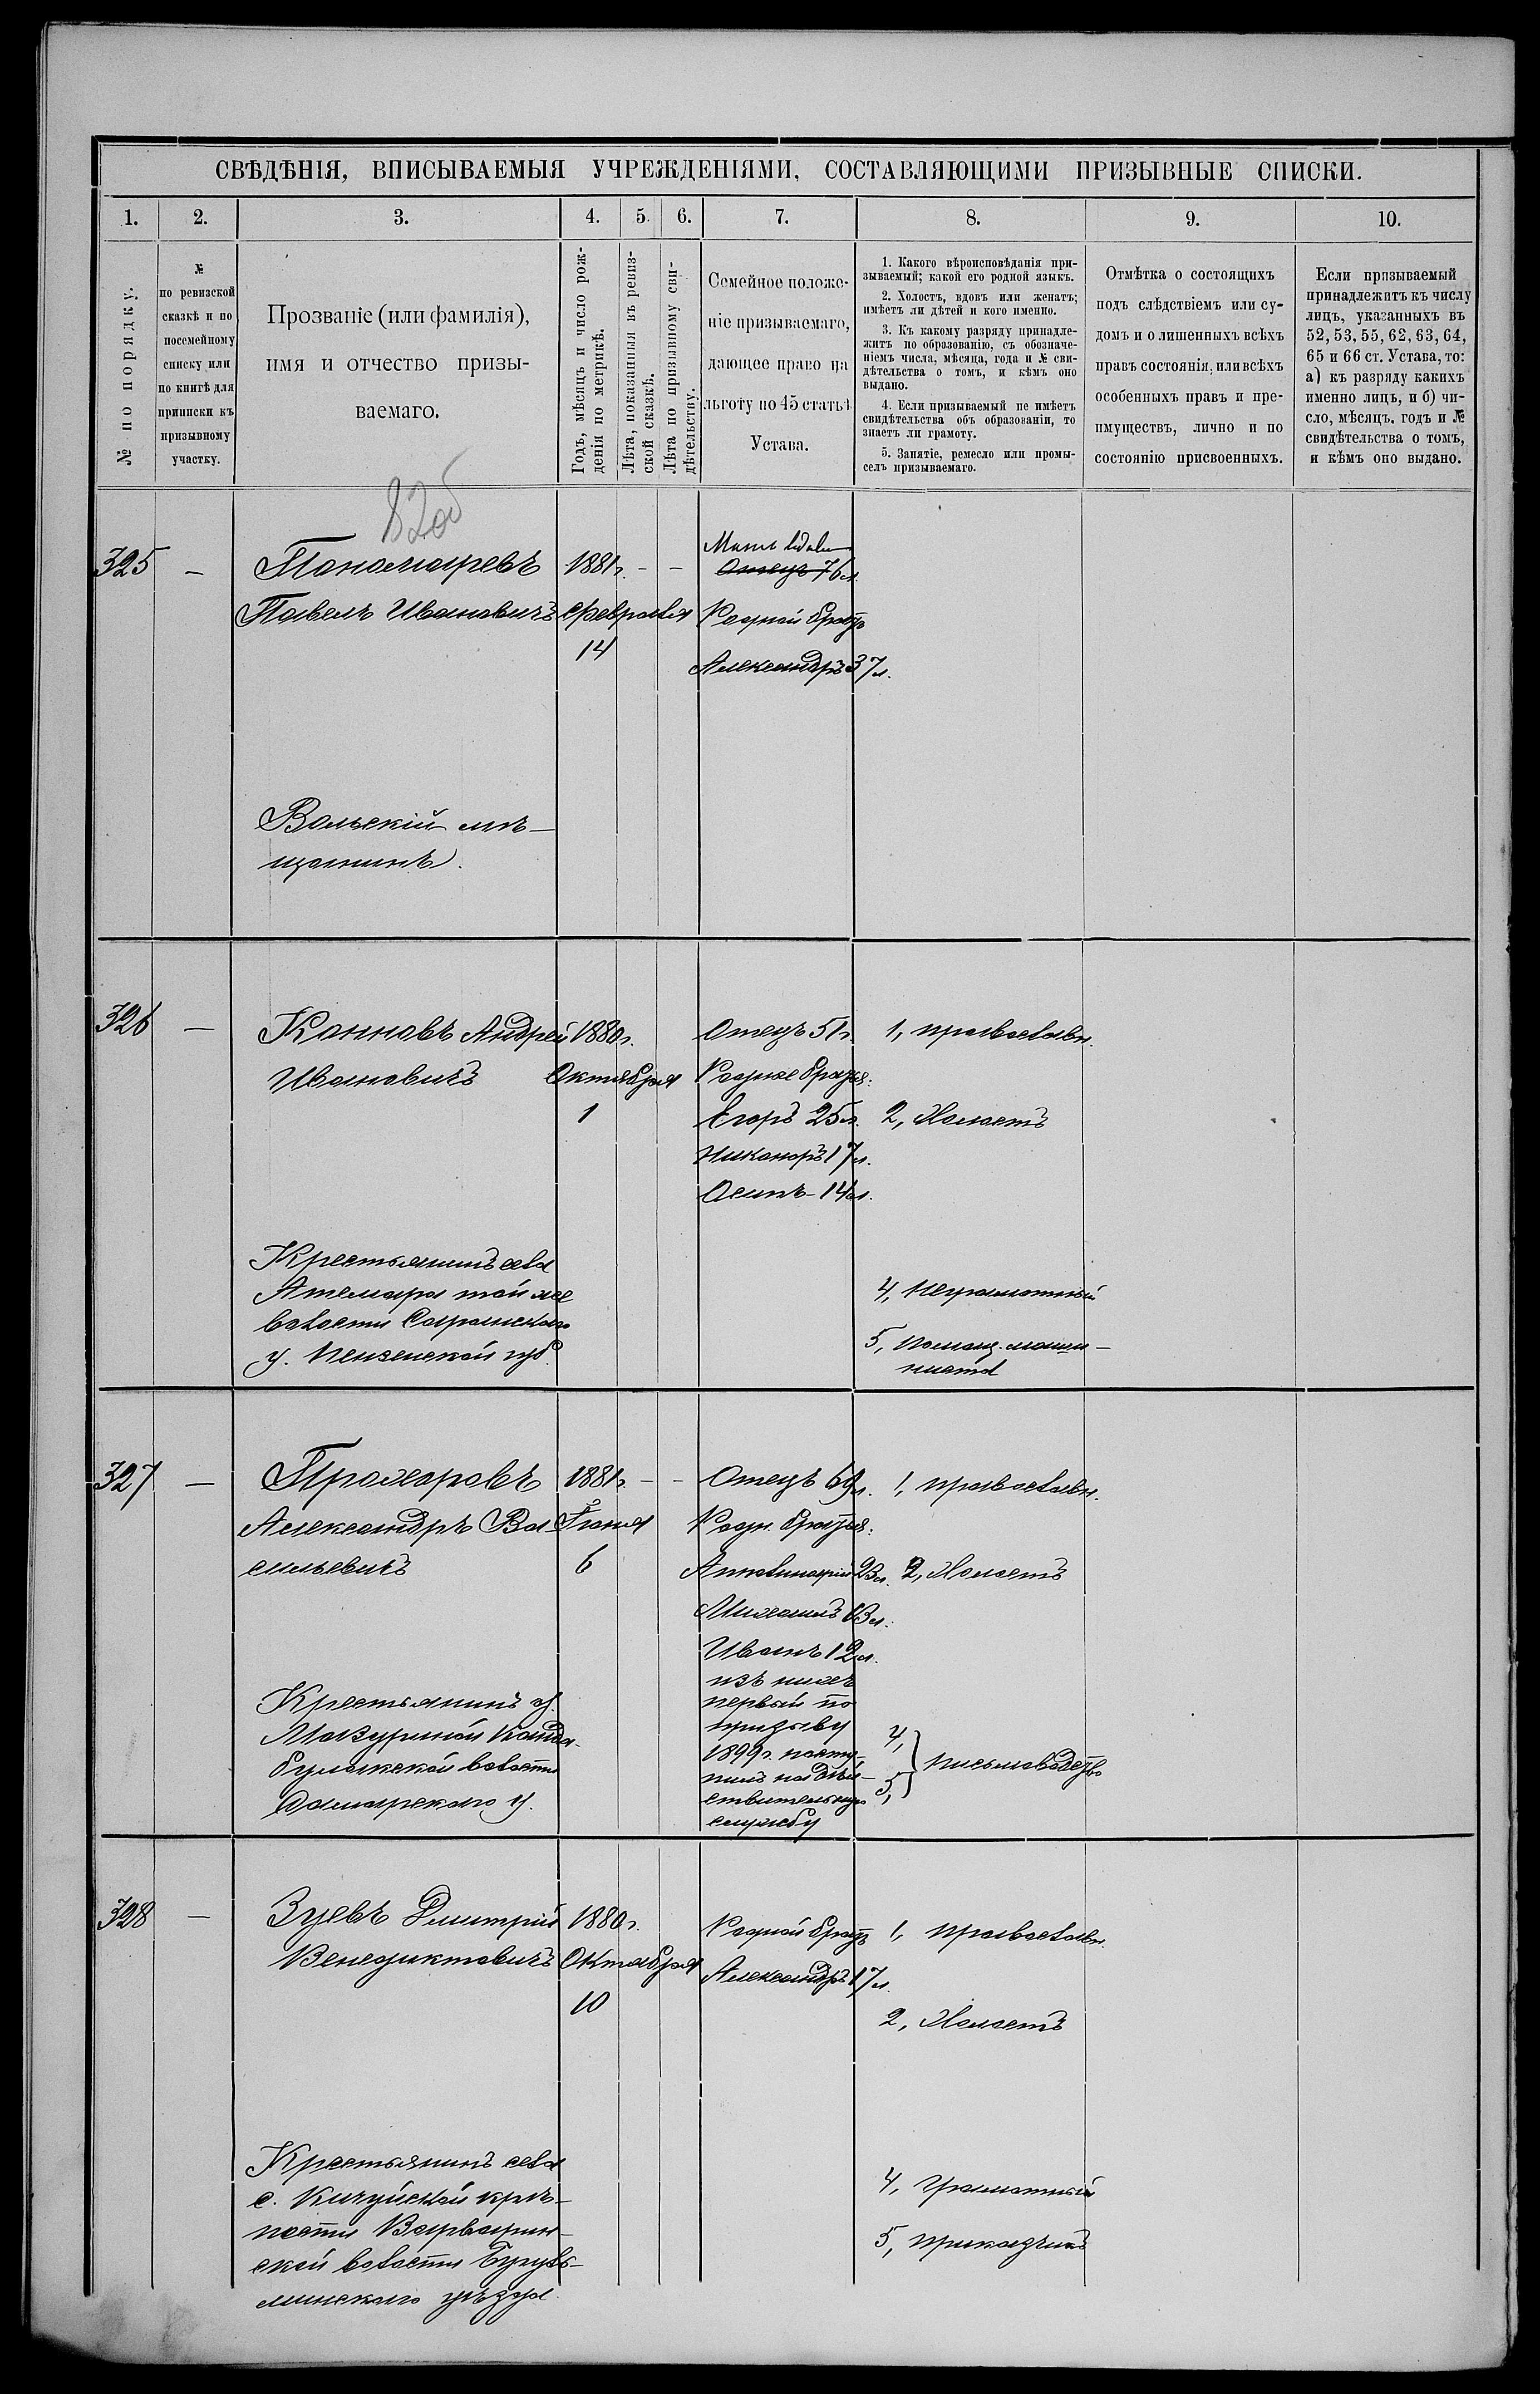 СВѢДѢНІЯ, ВПИСЫВАЕМЫЯ УЧРЕЖДЕНІЯМИ, СОСТАВЛЯЮЩИМИ ПРИЗЫВНЫЕ СПИСКИ.
1. 2. 3. 4. 5. 6. 7. 8. 9. 10.
№ по порядку.
№
по ревизской
сказкѣ и по
посемейному
списку или
по книгѣ для
приписки къ
призывному
участку.
Прозваніе (или фамилія),
имя и отчество призы-
ваемаго.
Годъ, мѣсяцъ и число рож-
денія по метрикѣ.
Лѣта, показанныя въ ревиз-
ской сказкѣ.
Лѣта по призывному сви-
дѣтельству.
Семейное положе-
ніе призываемаго,
дающее право на
льготу по 45 статьѣ
Устава.
1. Какого вѣроисповѣданія при-
зываемый; какой его родной языкъ.
2. Холостъ, вдовъ или женатъ;
имѣетъ ли дѣтей и кого именно.
3. Къ какому разряду принадле-
житъ по образованію, съ обозначе-
ніемъ числа, мѣсяца, года и № сви-
дѣтельства о томъ, и кѣмъ оно
выдано.
4. Если призываемый не имѣетъ
свидѣтельства объ образованіи, то
знаетъ ли грамоту.
5. Занятіе, ремесло или промы-
селъ призываемаго.
Отмѣтка о состоящихъ
подъ слѣдствіемъ или су-
домъ и о лишенныхъ всѣхъ
правъ состоянія, или всѣхъ
особенныхъ правъ и пре-
имуществъ, лично и по
состоянію присвоенныхъ.
Если призываемый
принадлежитъ къ числу
лицъ, указанныхъ въ
52, 53, 55, 62, 63, 64,
65 и 66 ст. Устава, то:
а) къ разряду какихъ
именно лицъ, и б) чи-
сло, мѣсяцъ, годъ и №
свидѣтельства о томъ,
и кѣмъ оно выдано.
325 —
Пономаревъ
Павелъ Ивановичъ
Вольскій мѣ-
щанинъ.
1881г. - -
Февраля
14
Мать вдова
Отецъ 76л
Родной братъ
Александръ 37л.
326 —
Конновъ Андрей
Ивановичъ
Крестьянинъ села
Атемара той же
волости Саранскаго
у. Пензенской губ.
1880г.
Октября
1
Отецъ 51г.
Родные братья:
Егоръ 25л.
Никаноръ 17л.
Осипъ - 14л.
1, православн.
2, Холостъ
4, Неграмотный
5, Помощ. маши-
ниста
327 —
Прохоровъ
Александръ Ва
сильевичъ
Крестьянинъ д.
Мазуриной Канда-
булакской волости
Самарскаго у.
1881г. - -
Іюня
6
Отецъ 69л.
Родн. братья:
Апполинарій 23л.
Михаилъ 13л.
Иванъ 12л.
изъ нихъ
первый по
призыву
1899г. посту-
пилъ на дѣй-
ствительную
службу
1, православн.
2, Холостъ
4,
5,
письмоводство
328 —
Зуевъ Дмитрій
Венедиктовичъ
Крестьянинъ села
с. Кичуйской крѣ-
пости Варварин-
ской волости Бугуль-
минскаго уѣзда
1880г.
Октября
10
Родной братъ
Александръ 17л.
1, православн.
2, Холостъ
4, Грамотный
5, приказчикъ